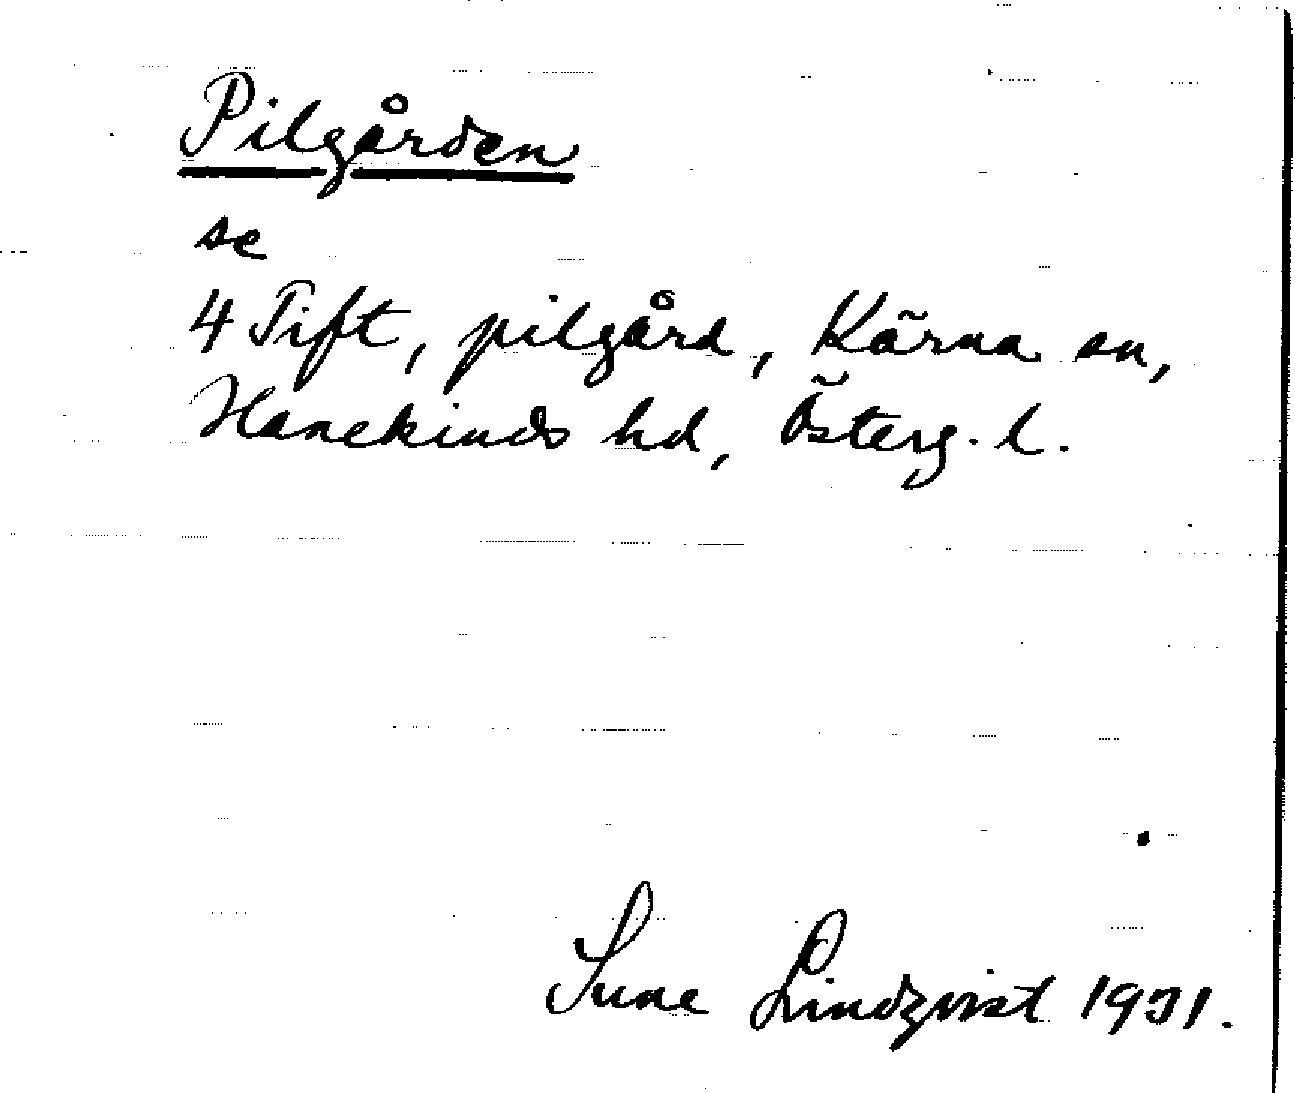 Pilgården
se
4 Tift, pilgård, Kärna sn,
Hanekinds hd, Österg. l.
Sune Lindqvist 1931.